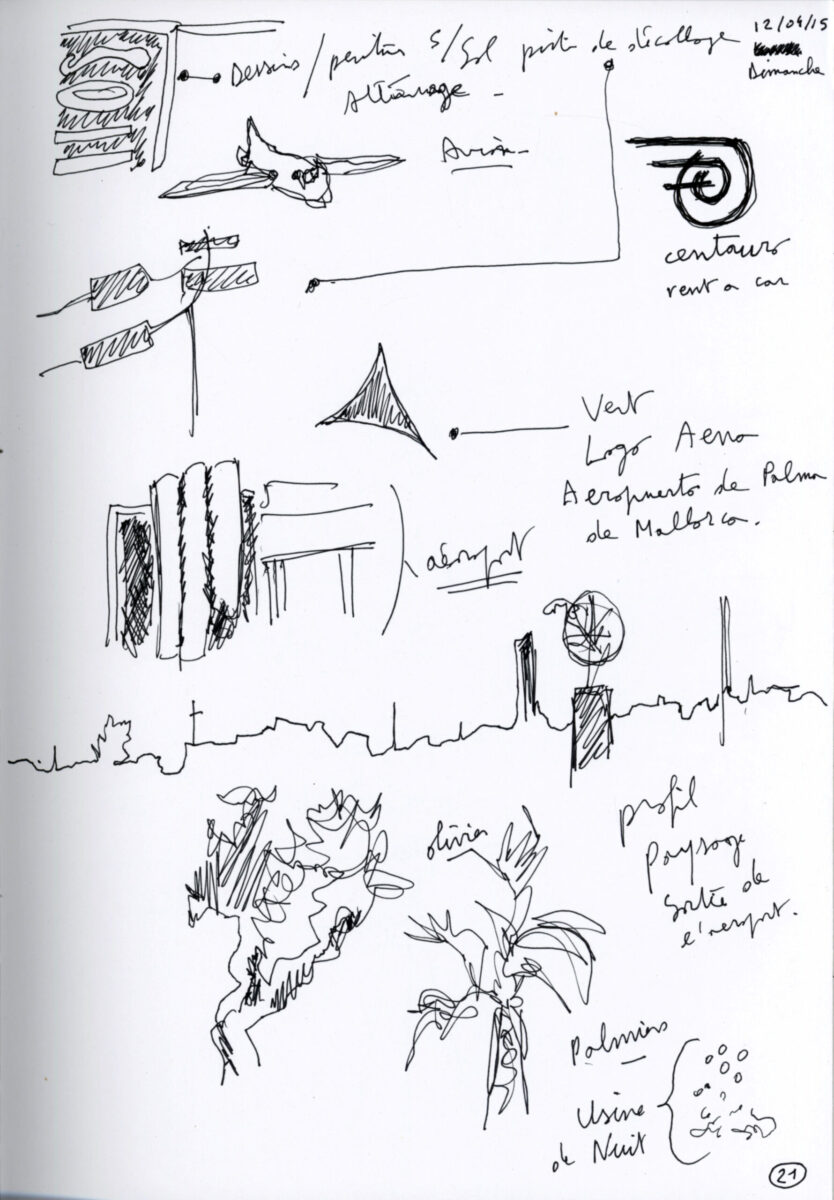 12/04/15
Dimanche
Dessins / peinture s/Sol piste de décollage
Atterrissage -
Avion -
centauro
rent a car
Vert
Logo Aena
Aeropuerto de Palma
de Mallorca.
aéroport
olivier
profil
Paysage
Sortie de
l'aéroport.
Palmiers
Usine
de Nuit
21